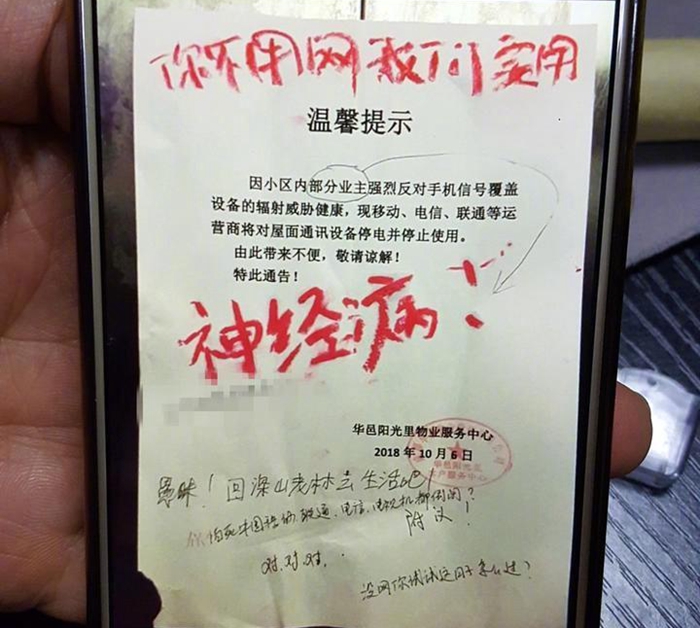 你不用网我们要用
温馨提示
因小区内部分业主强烈反对手机信号覆盖
设备的辐射威胁健康，现移动、电信、联通等运
营商将对屋面通讯设备停电并停止使用。
由此带来不便，敬请谅解！
特此通告！
神经病！
华邑阳光里物业服务中心
2018 年 10 月 6 日
华邑阳光里
客户服务中心
愚昧！回深山老林去生活吧！
怕死
联通、电信、电视机都倒闭？
附议！
对.对.对.
没网你试试这日子怎么过？